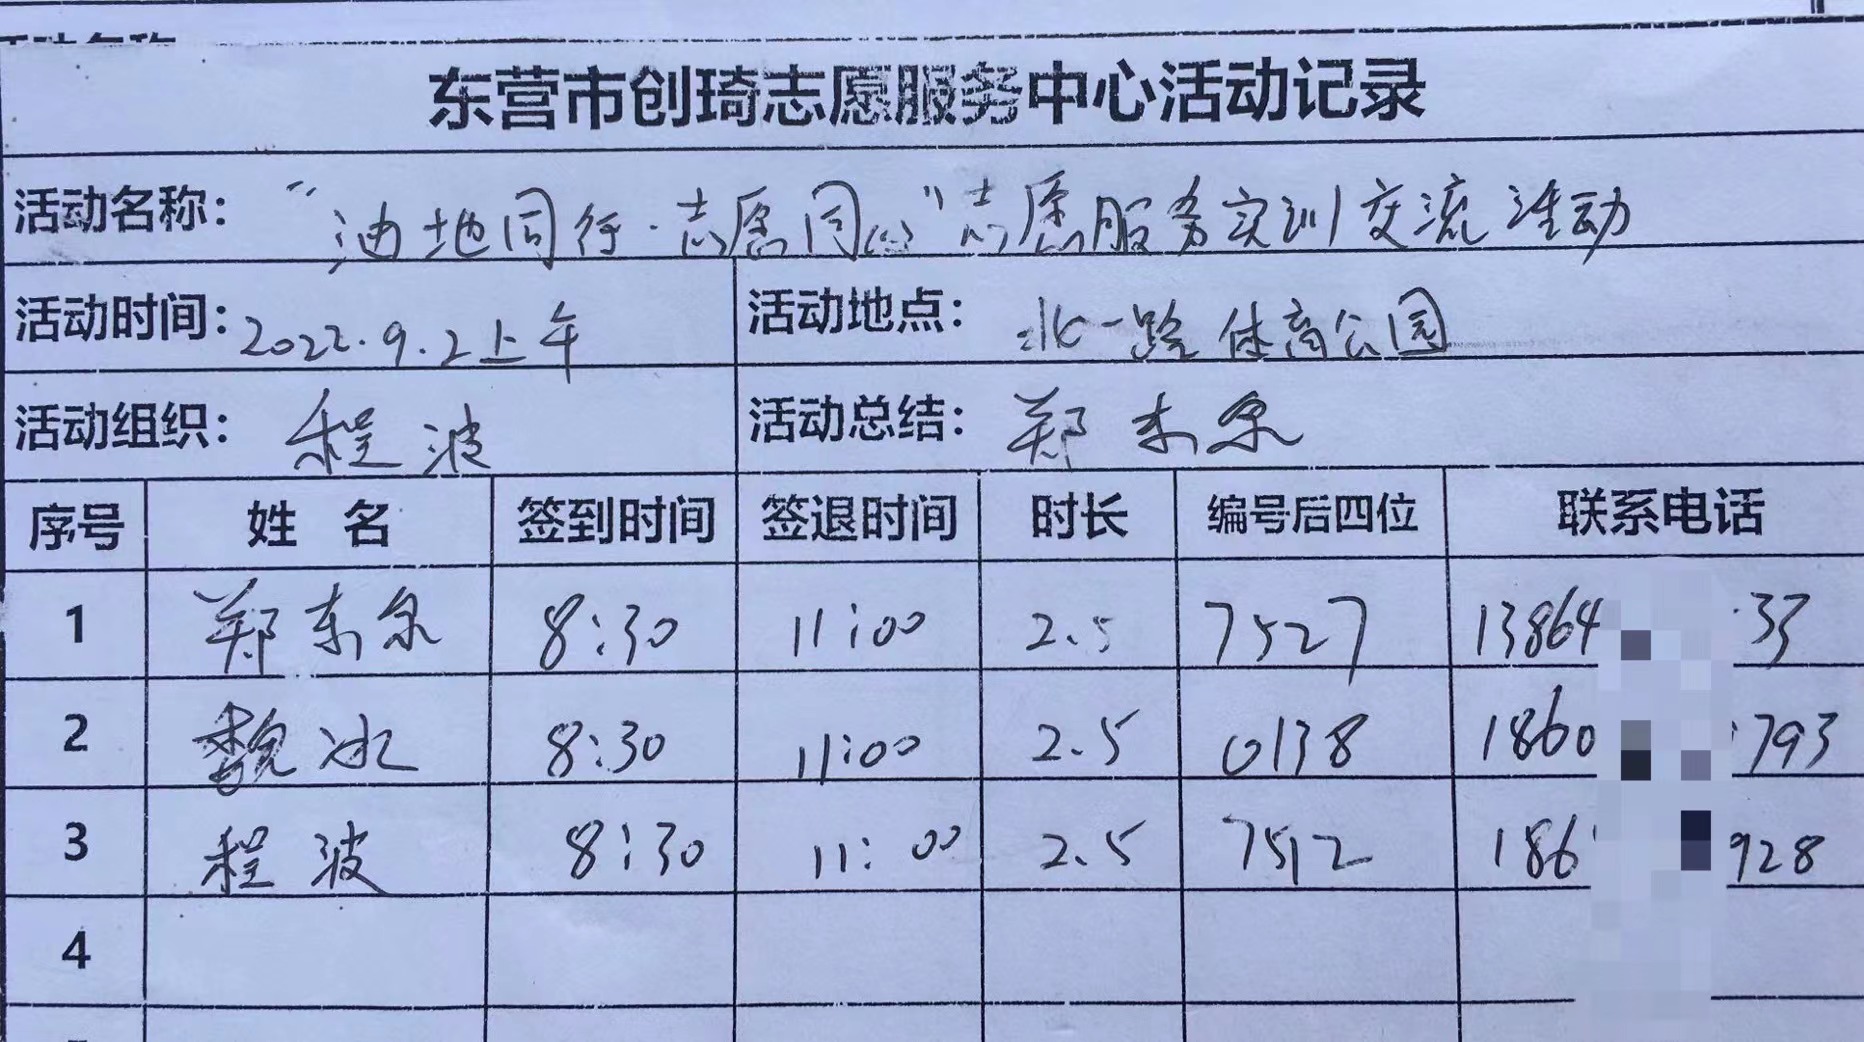 东营市创琦志愿服务中心活动记录
活动名称： “油地同行·志愿同心”志愿服务实训交流活动
活动时间：2022.9.2上午 活动地点： 北一路体育公园
活动组织： 程波 活动总结： 郑东泉
序号 姓名 签到时间 签退时间 时长 编号后四位 联系电话
1 郑东泉 8:30 11:00 2.5 7527 13864 33
2 魏冰 8:30 11:00 2.5 0138 1860 793
3 程波 8:30 11:00 2.5 7512 186 928
4